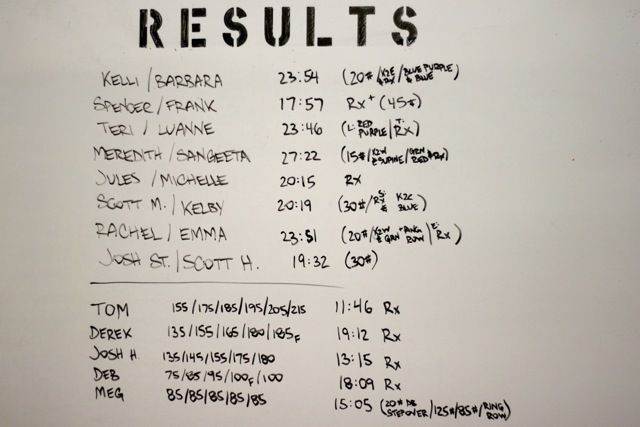 RESULTS
KELLI/BARBARA 23:54 (20#/K2E & RX/BLUE PURPLE & BLUE)
SPENCER/FRANK 17:57 Rx+ (45#)
TERI/LUANNE 23:46 (L: RED PURPLE/T: Rx)
MEREDITH/SANGEETA 27:22 (15#/K2W & SUPINE/GRN RED & Rx)
JULES/MICHELLE 20:15 Rx
SCOTT M./KELBY 20:19 (30#/S: Rx K2C & BLUE)
RACHEL/EMMA 23:51 (20#/K2W & GRN RING ROW/E: Rx)
JOSH ST./SCOTT H. 19:32 (30#)
TOM 155/175/185/195/205/215 11:46 Rx
DEREK 135/155/165/180/185F 19:12 Rx
JOSH H. 135/145/155/175/180 13:15 Rx
DEB 75/85/95/100F/100 18:09 Rx
MEG 85/85/85/85/85 15:05 (20# DB STEPOVER/125#/85#/RING ROW)